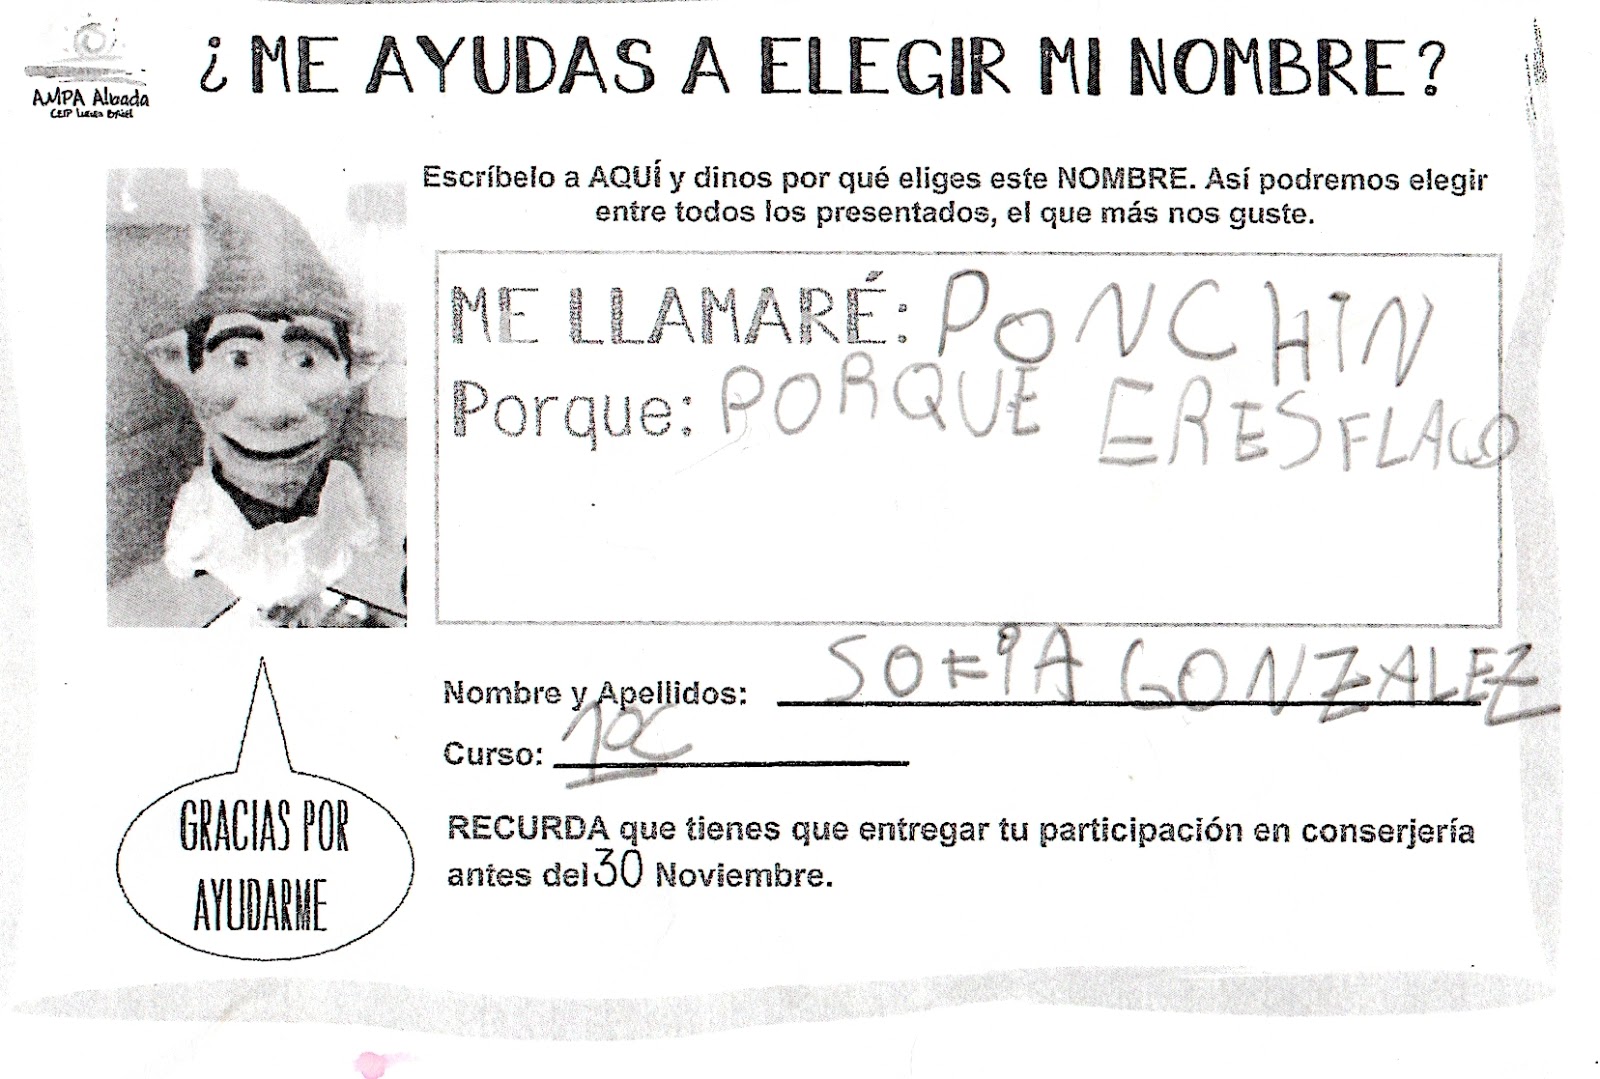 ¿ME AYUDAS A ELEGIR MI NOMBRE?
AMPA Albada
CEIP
Escríbelo a AQUÍ y dinos por qué eliges este NOMBRE. Así podremos elegir
entre todos los presentados, el que más nos guste.
ME LLAMARÉ: PONCHIN
Porque: PORQUE ERES FLACO
Nombre y Apellidos: SOFIA GONZALEZ
Curso: 1oC
RECURDA que tienes que entregar tu participación en conserjería
antes del 30 Noviembre.
GRACIAS POR
AYUDARME